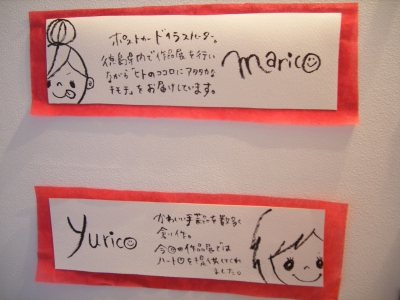 ポストカードイラストレーター。
徳島県内で作品展を行い
ながら"ヒトのココロにアタタカな
キモチ"をお届けしています。
marico
yurico
かわいい手芸品を数多く
創作。
今回の作品展では
ハート♡を提供してくれ
ました。